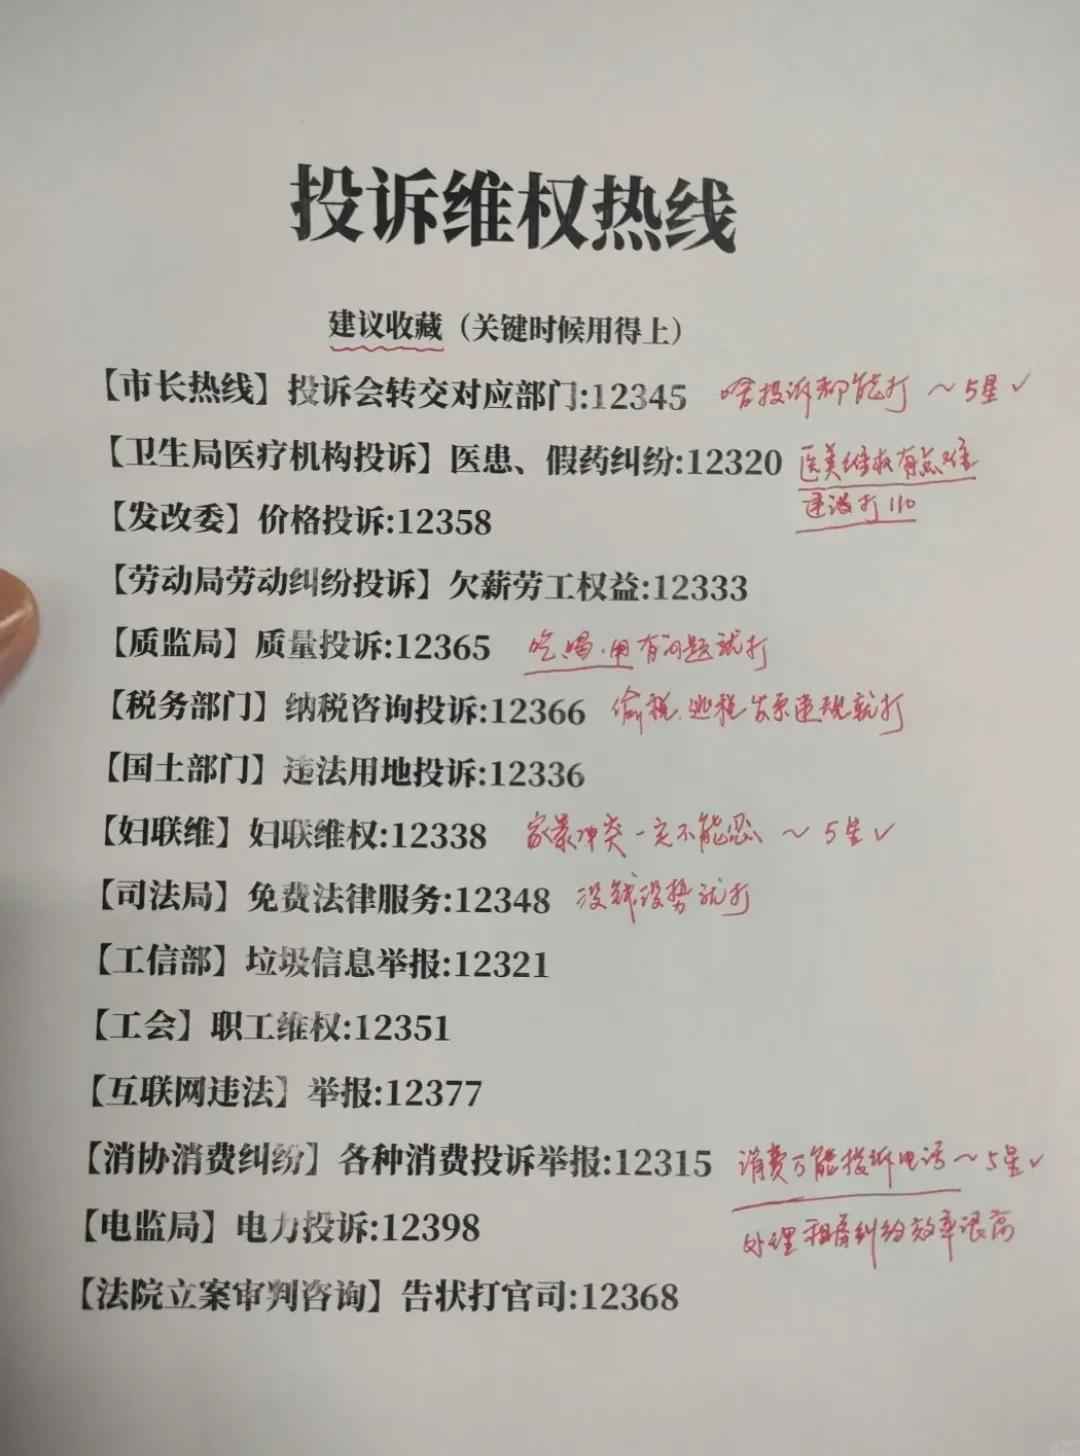 投诉维权热线
建议收藏（关键时候用得上）
【市长热线】投诉会转交对应部门:12345 啥投诉都能打 ～5星✓
【卫生局医疗机构投诉】医患、假药纠纷:12320 医美维权有点难
速没打110
【发改委】价格投诉:12358
【劳动局劳动纠纷投诉】欠薪劳工权益:12333
【质监局】质量投诉:12365 吃.喝.用有问题就打
【税务部门】纳税咨询投诉:12366 偷税.逃税发票违规就打
【国土部门】违法用地投诉:12336
【妇联维】妇联维权:12338 家暴一定不能忍 ～5星✓
【司法局】免费法律服务:12348 没钱没势就打
【工信部】垃圾信息举报:12321
【工会】职工维权:12351
【互联网违法】举报:12377
【消协消费纠纷】各种消费投诉举报:12315 消费万能投诉电话～5星✓
处理租房纠纷效率很高
【电监局】电力投诉:12398
【法院立案审判咨询】告状打官司:12368